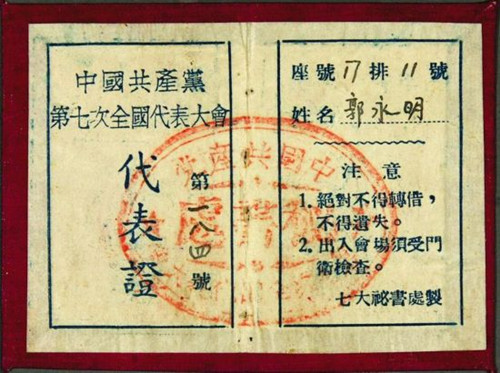 中國共產黨
第七次全國代表大會
代表證
第一八四號
座號17排11號
姓名 郭永明
注意
1. 絕對不得轉借，
不得遺失。
2. 出入會場須受門
衛檢查。
七大祕書處製
中國共產黨